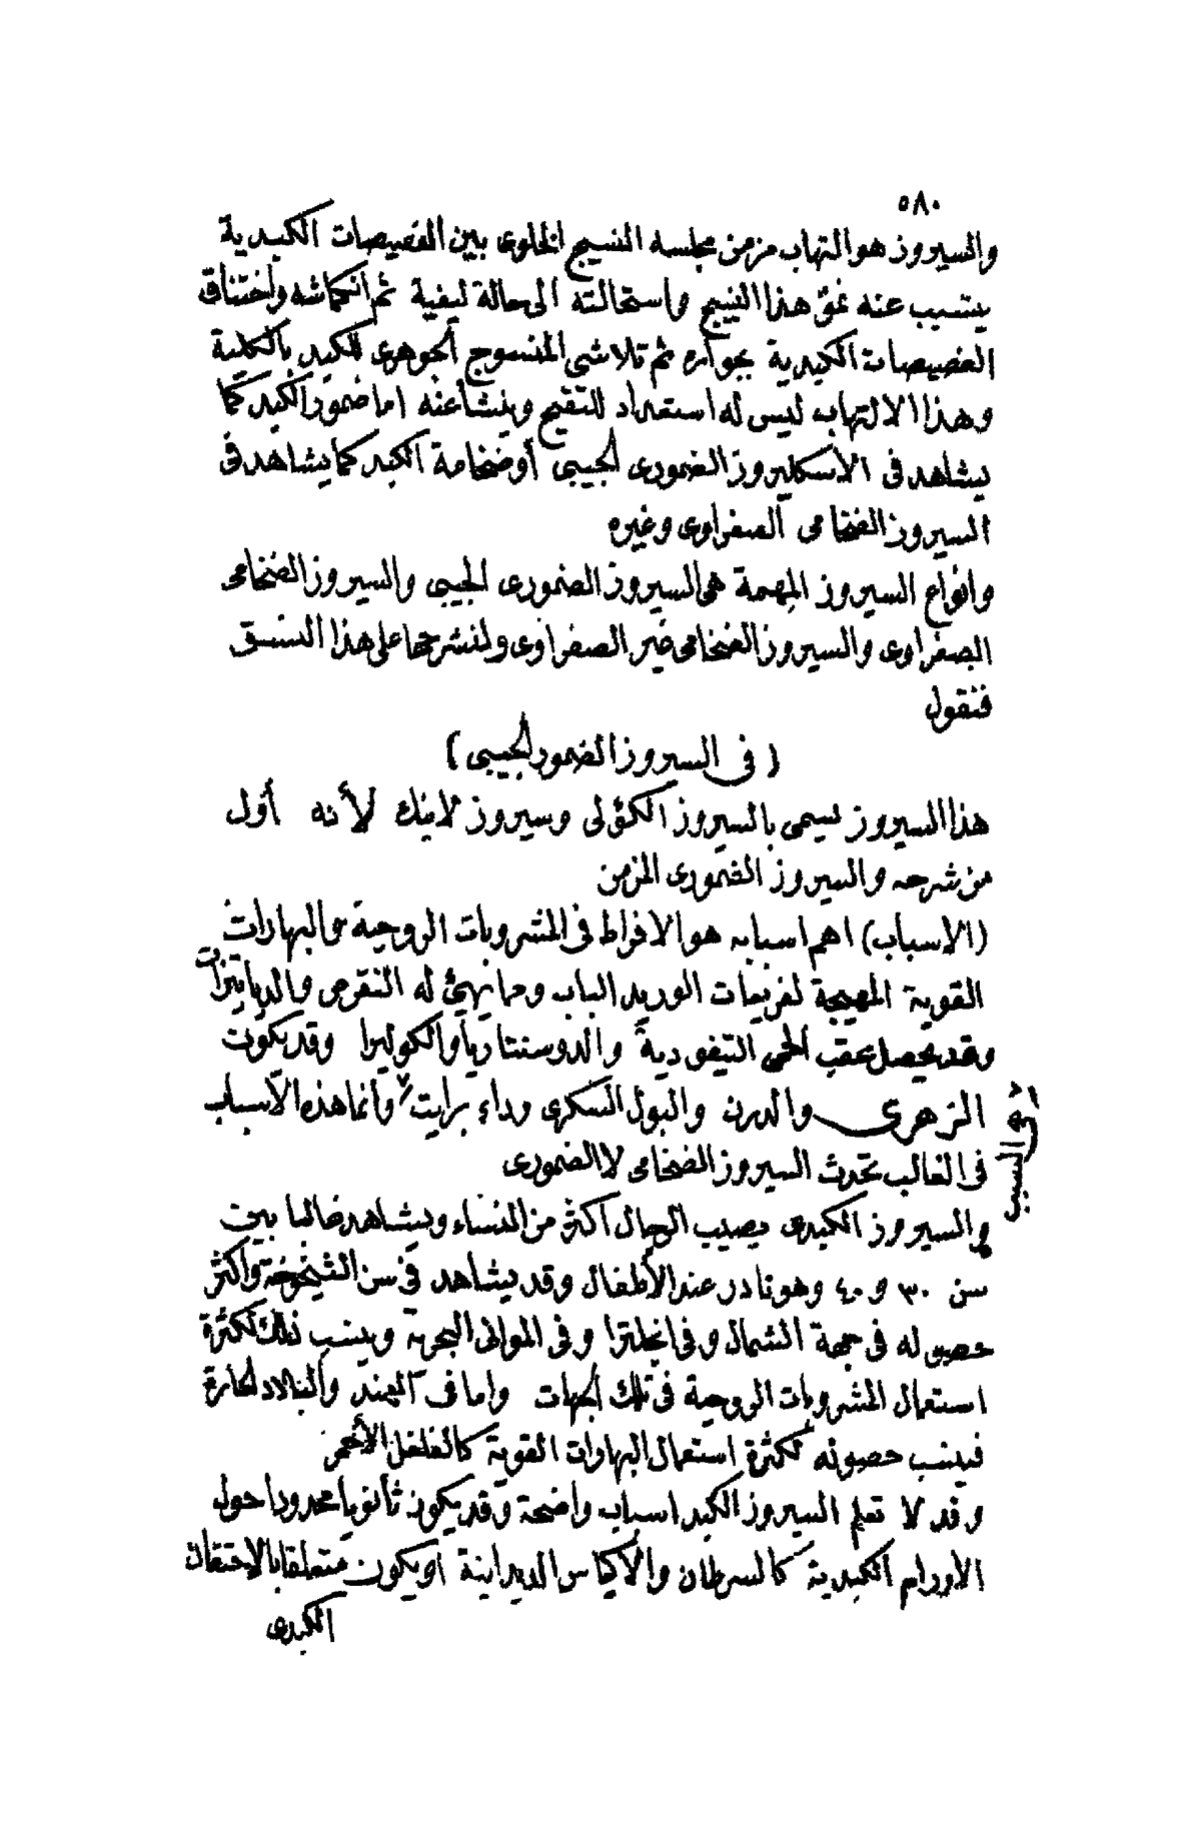 ٥٨٠
والسيروز هو التهاب مزمن مجلسه النسيج الخلوى بين الفصيصات الكبدية
يتسبب عنه نمو هذا النسيج واستحالته الى حالة ليفية ثم انكماشه واختناق
الفصيصات الكبدية بجواره ثم تلاشى المنسوج الجوهرى للكبد بالكلية
وهذا الالتهاب ليس له استعداد للتقيح وينشأ عنه اما ضمور الكبد كما
يشاهد فى الاسكليروز الضمورى الحبيبى أو ضخامة الكبد كما يشاهد فى
السيروز الضخامى الصفراوى وغيره
وانواع السيروز المهمة هى السيروز الضمورى الحبيبى والسيروز الضخامى
الصفراوى والسيروز الضخامى غير الصفراوى ولنشرحها على هذا النسق
فنقول
(فى السيروز الضمور الحبيبى)
هذا السيروز يسمى بالسيروز الكؤلى وسيروز لاينك لأنه أول
من شرحه والسيروز الضمورى المزمن
(الاسباب) اهم اسبابه هو الافراط فى المشروبات الروحية والبهارات
القوية المهيجة لفريعات الوريد الباب ومما يهيئ له النقرس والدياتيزات
وقد يحصل عقب الحمى التيفودية والدوسنتاريا والكوليرا وقد يكون
الزهرى والدرن والبول السكرى وداء برايت وانما هذه الاسباب
هى السبب
فى الغالب تحدث السيروز الضخامى لا الضمورى
والسيروز الكبدى يصيب الرجال أكثر من النساء ويشاهد غالبا بين
سن ٣٠ و ٤٠ وهو نادر عند الأطفال وقد يشاهد فى سن الشيخوخة وأكثر
حصوله فى جهة الشمال وفى انجلترا وفى الموانى البحرية وينسب ذلك لكثرة
استعمال المشروبات الروحية فى تلك الجهات واما فى الهند والبلاد الحارة
فينسب حصوله لكثرة استعمال البهارات القوية كالفلفل الأحمر
وقد لا تعلم السيروز الكبد اسباب واضحة وقد يكون ثانويا محدودا حول
الاورام الكبدية كالسرطان والأكياس الديدانية أو يكون متعلقا بالاحتقان
الكبدى